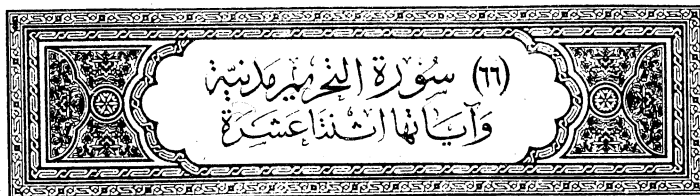 (٦٦) سُورَة التحريم مَدنيّة
وَآيَاتها اثنَتا عَشرَة